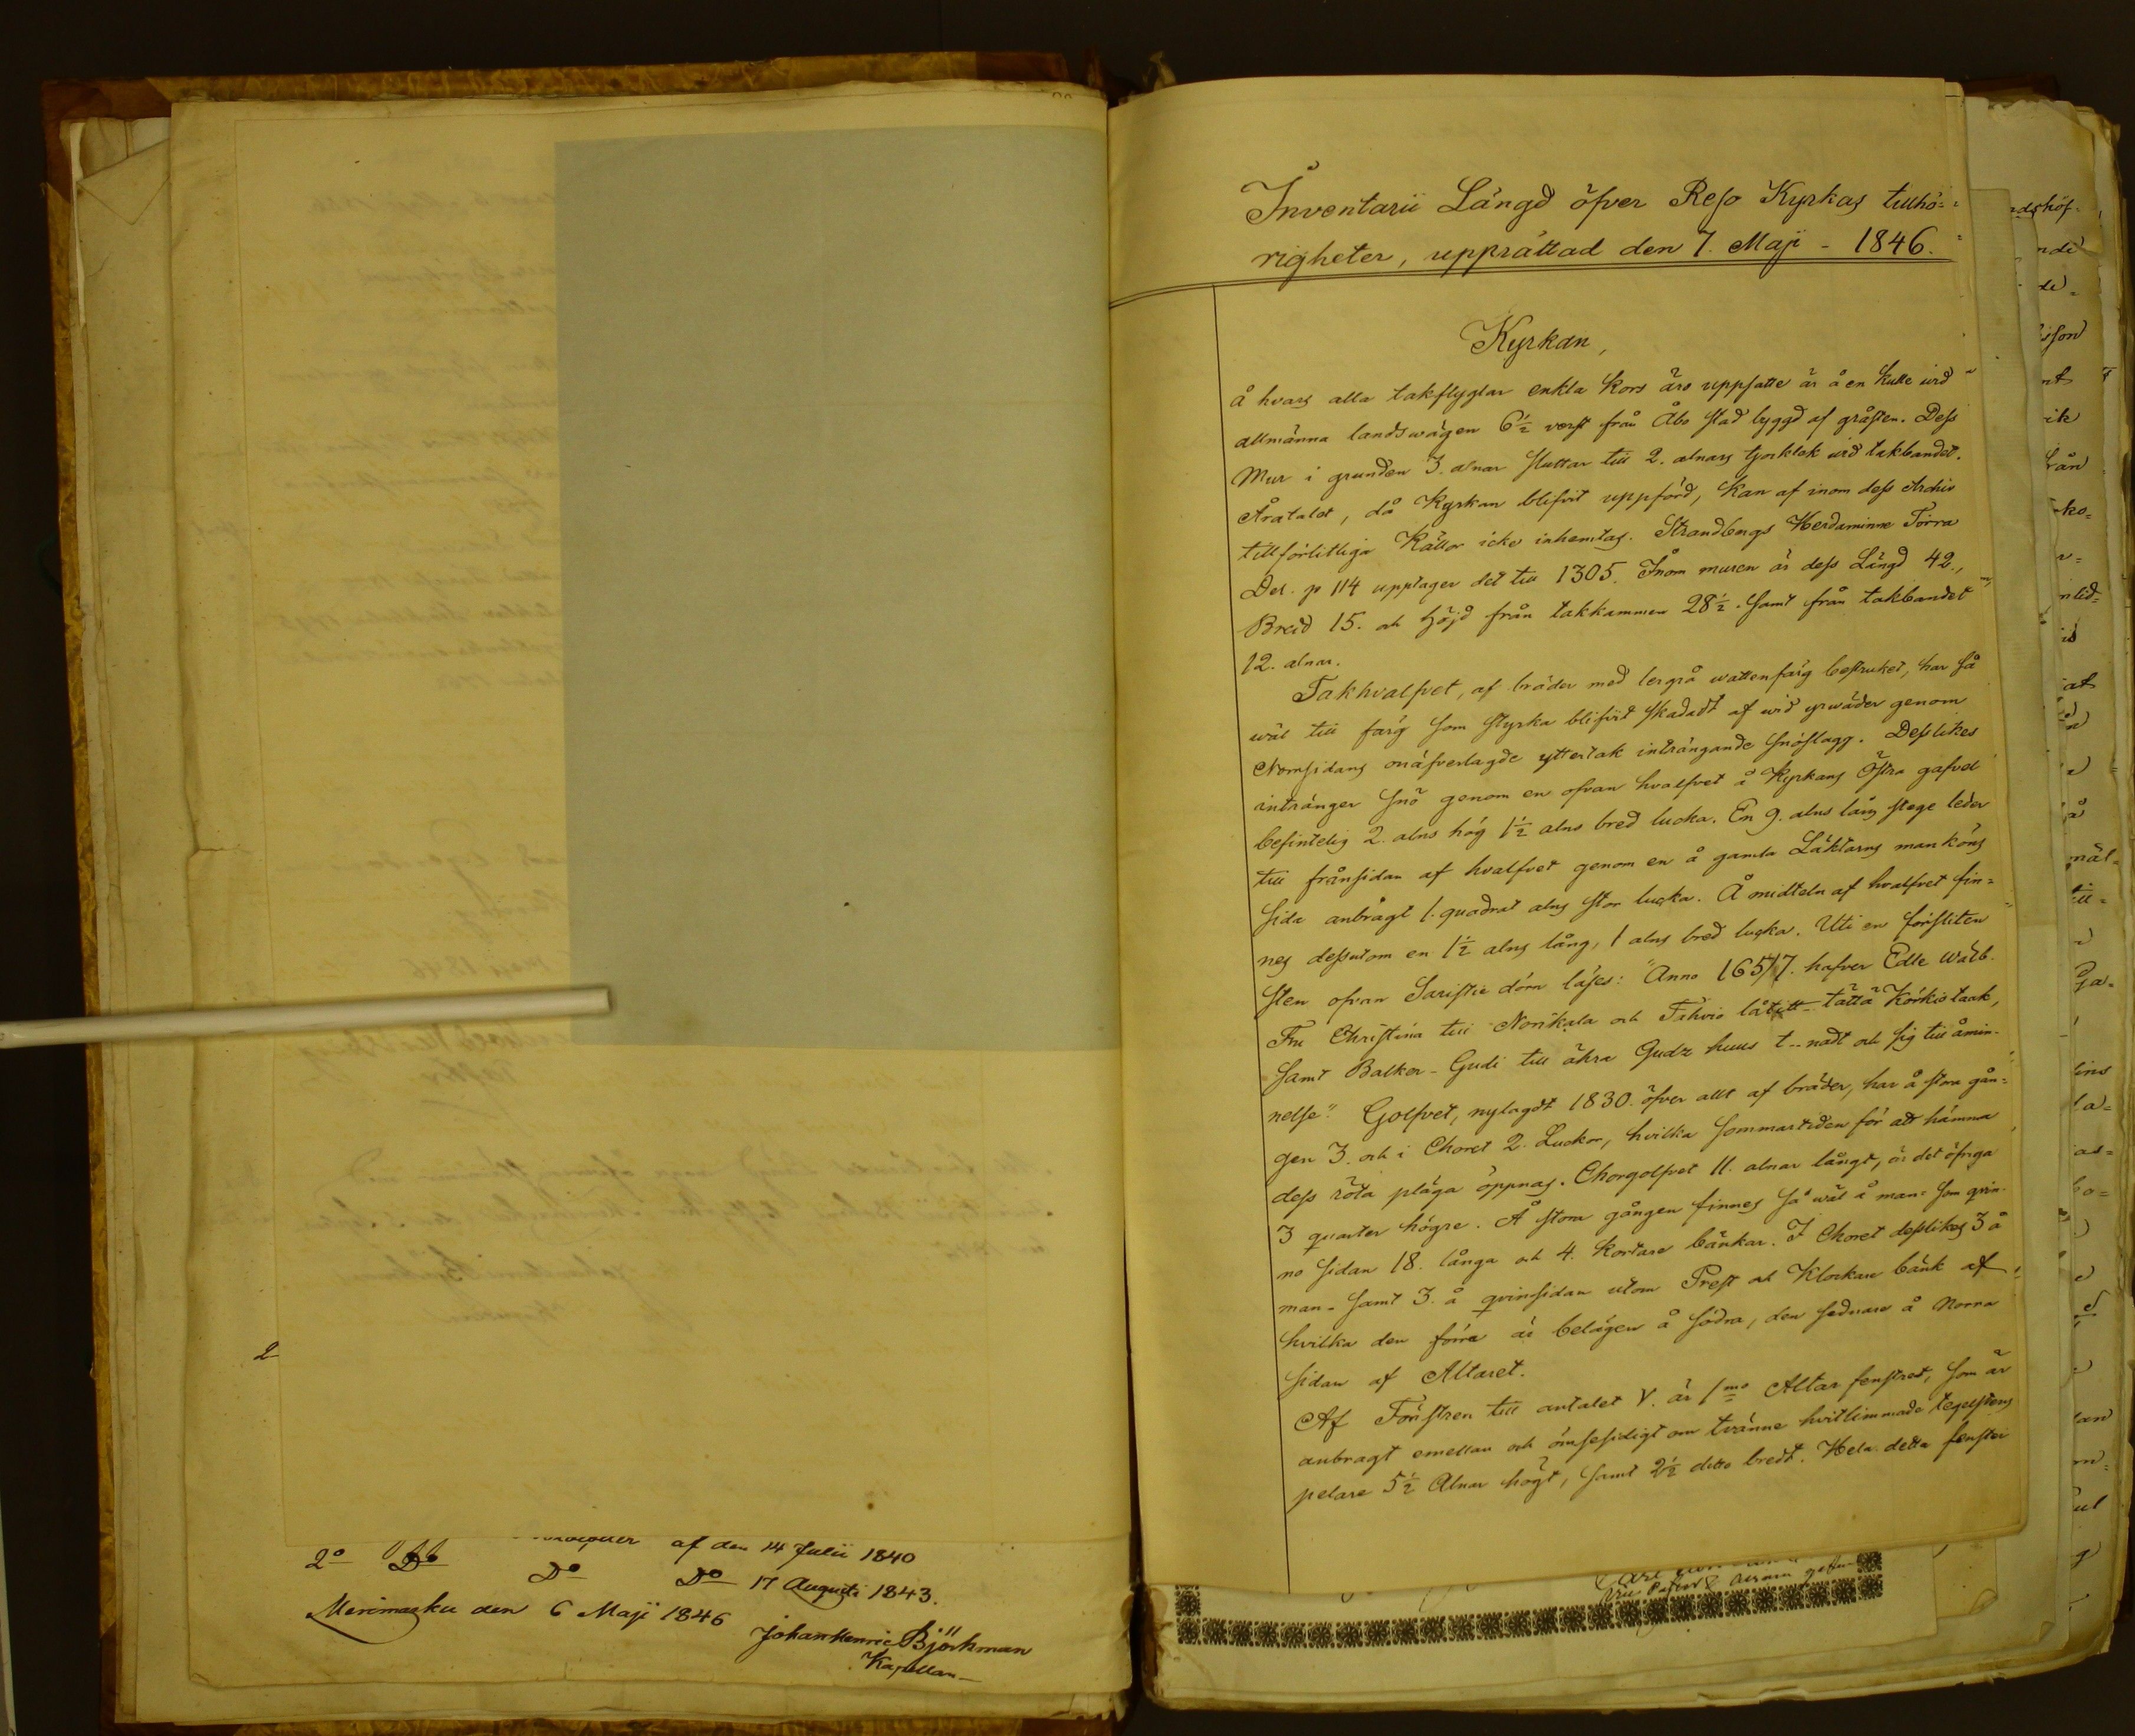 2
af den 14 Julii 1840
2o Do Do Do 17 Augusti 1843.
Merimasku den 6 Maji 1846
Johan Henric Björkman
Kapellan
Inventarii Längd öfver Reso Kyrkas tillhö-
righeter, upprättad den 7. Maji - 1846.
Kyrkan,
å hvars alla takflyglar enkla Kors äro uppsatte är å en kulle wid
allmänna landswägen 6½ verst från Åbo stad byggd af gråsten. Dess
Mur i grunden 3. alnar sluttar till 2. alnars tjocklek wid takbandet.
Åratalet, då Kyrkan blifvit uppförd, kan af inom dess Archiv
tillförlitliga Källor icke inhemtas. Strandbergs Herdaminne Förra
Del. p 114 upptager det till 1305. Inom muren är dess Längd 42.,
Bred 15. och Höjd från takkammen 28½. samt från takbandet
12. alnar.
Takhvalfvet, af bräder med lergrå wattenfärg bestruket, har så
wäl till färg som styrka blifvit skadadt af wid yrwäder genom
Norrsidans onäfverlagde yttertak inträngande snöslagg. Desslikes
intränger snö genom en ofvan hvalfvet å Kyrkans Östra gafvel
befintelig 2. alns hög 1½ alns bred lucka. En 9. alns lång stege leder
till frånsidan af hvalfvet genom en å gamla Läktarns manköns
sida anbragt 1. quadrat alns stor lucka. Å midteln af hvalfvet fin-
nes dessutom en 1½ alns lång, 1 alns bred lucka. Uti en försliten
sten ofvan Saristie dörn läses: "Anno 1657. hafver Edle wälb.
Fru Christina till Norikala och Tahvio låtitt täïta Körkio taak,
samt Balker - Gudi till ähra Gudz huus t--nadt och sig till åmin-
nelse". Golfvet, nylagdt 1830. öfver allt af bräder, har å stora gån-
gen 3. och i Choret 2. Luckor, hvilka sommartiden för att hämma
dess röta pläga öppnas. Chorgolfvet 11. alnar långt, är det öfriga
3 quarter högre. Å stora gången finnes så wäl å man- som qvin-
no sidan 18. långa och 4. kortare bänkar. I Choret desslikes 3 å
man- samt 3. å qvinsidan utom Prest och Klockare bänk af
hvilka den förra är belägen å södra, den sednare å Norra
sidan af Altaret.
Af Fönstren till antalet V. är 1mo Altar fenstret, som är
anbragt emellan och ömsesidigt om tvänne hvitlimmade tegelstens
pelare 5½ Alnar högt, samt 2½ ditto bredt. Hela detta fenster